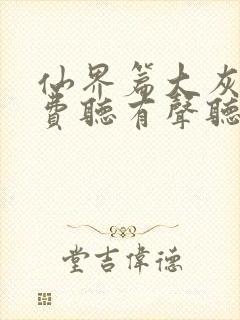 仙界篇大灰
費聽有聲聽
堂吉偉德